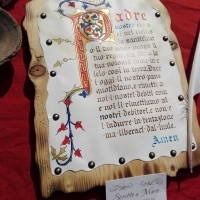 Padre
nostro che s
ei nei cieli s
ia santifica
to il tuo nome venga il
tuo regno sia fatta la
tua volontà come in c
ielo così in terra. Dacc
i oggi il nostro pane
quotidiano, e rimetti
a noi i nostri debiti c
ome noi li rimettiamo ai
nostri debitori, e non c
i indurre in tentazione
ma liberaci dal male.
Amen
Scritto a Mano